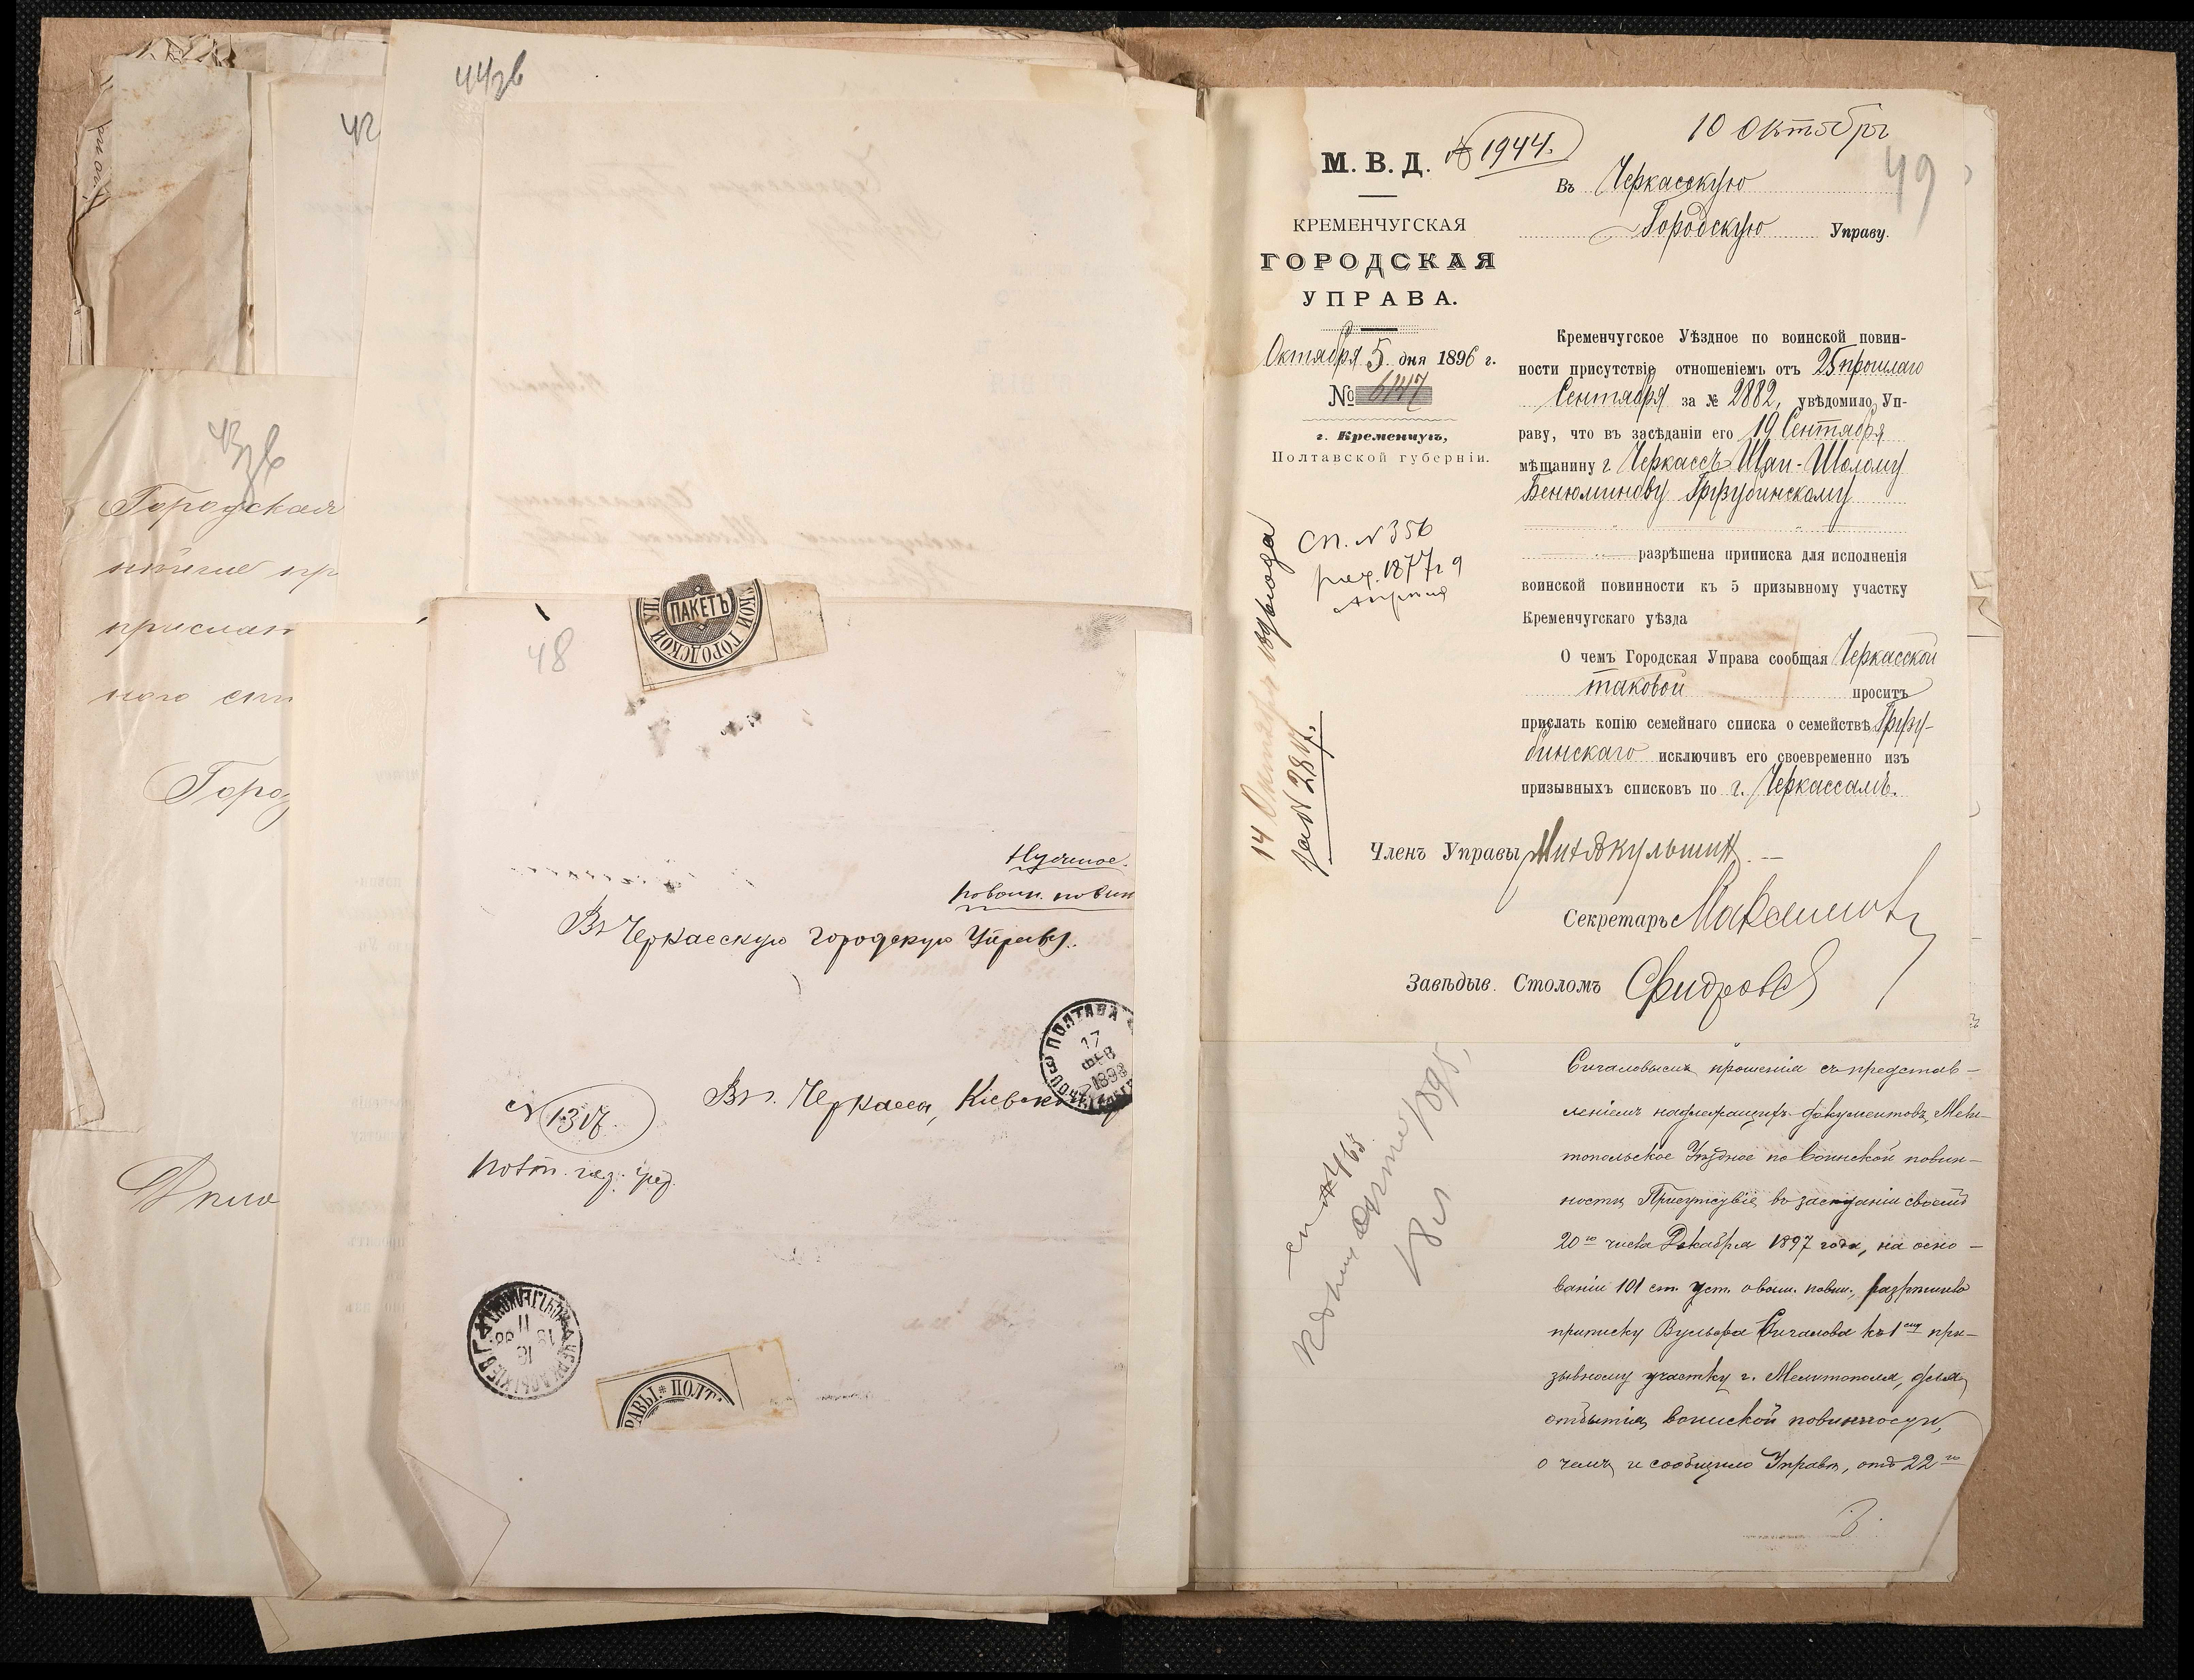 44зв
42
43зв
Городская
прислан
Горо
48
ПАКЕТЪ
КОЙ ГОРОДСКОЙ
Нужное.
повоин. повин
Въ Черкасскую Городскую Управу.
ПОЛТАВА
17
ФЕВ
1898
Въ г. Черкассы, Кіевск
№ 1317.
РАВЫ * ПОЛТ
10 Октября
49
М. В. Д.
№ 1944.
Въ Черкасскую
Городскую Управу.
КРЕМЕНЧУГСКАЯ
ГОРОДСКАЯ
УПРАВА.
Октября 5 дня 1896 г.
№ 6147
г. Кременчугъ,
Полтавской губерніи.
Кременчугское Уѣздное по воинской повин-
ности присутствіе отношеніемъ отъ 25 прошлаго
Сентября за № 2882, увѣдомило Уп-
раву, что въ засѣданіи его 19 Сентября
мѣщанину г Черкассъ Шая-Шолому
Бенюминову Грузубинскому
разрѣшена приписка для исполненія
воинской повинности къ 5 призывному участку
Кременчугскаго уѣзда
О чемъ Городская Управа сообщая Черкасской
таковой проситъ
прислать копію семейнаго списка о семействѣ Грузу-
бинскаго исключивъ его своевременно изъ
призывныхъ списковъ по г. Черкассамъ.
Сп. № 356
1877 г 9
14 Октября
за № 2847.
Членъ Управы
Секретарь
Завѣдыв. Столомъ
Сигаловымъ прошенія съ представ-
леніемъ надлежащихъ документовъ, Мели-
топольское Уѣздное по воинской повин-
ности Присутствіе, въ засѣданіи своемъ
20го числа Декабря 1897 года, на осно-
ваніи 101 ст. уст. о воин. повин., разрѣшило
приписку Вульфа Сигалова къ 1му при-
зывному участку г. Мелитополя, для
отбытія воинской повинности,
о чемъ и сообщило Управѣ, отъ 22го
сп № 465